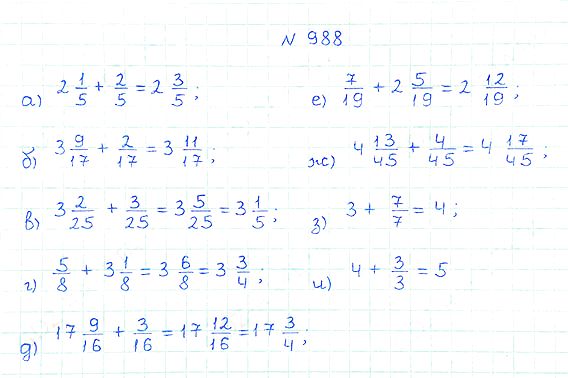 N 988
а) 2 1/5 + 2/5 = 2 3/5;
б) 3 9/17 + 2/17 = 3 11/17;
в) 3 2/25 + 3/25 = 3 5/25 = 3 1/5;
г) 5/8 + 3 1/8 = 3 6/8 = 3 3/4;
д) 17 9/16 + 3/16 = 17 12/16 = 17 3/4;
е) 7/19 + 2 5/19 = 2 12/19;
ж) 4 13/45 + 4/45 = 4 17/45;
з) 3 + 7/7 = 4;
и) 4 + 3/3 = 5